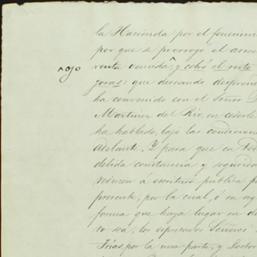 la Hacienda por el fenecimi
por que se prorrogó el arren
renta vencida, y cobró el resto
que deseando
ha convenido con el Señor D
Martinez del Rio, en cederle
ha hablado, bajo las condiciones
adelante. Y para que en todo
debida constancia, y seguridad
reducen á escritura pública
presente, por la cual, ó en aq
forma que haya lugar en de
to va, los espresados Señores
Frias, por la una parte, y Doctor